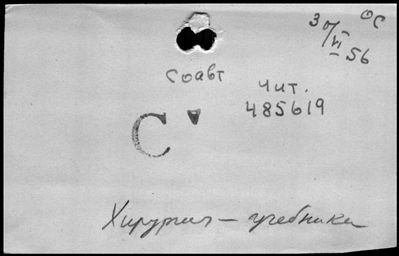 30/VI 56
ОС
соавт
Чит.
485619
С
Хирургия — учебники